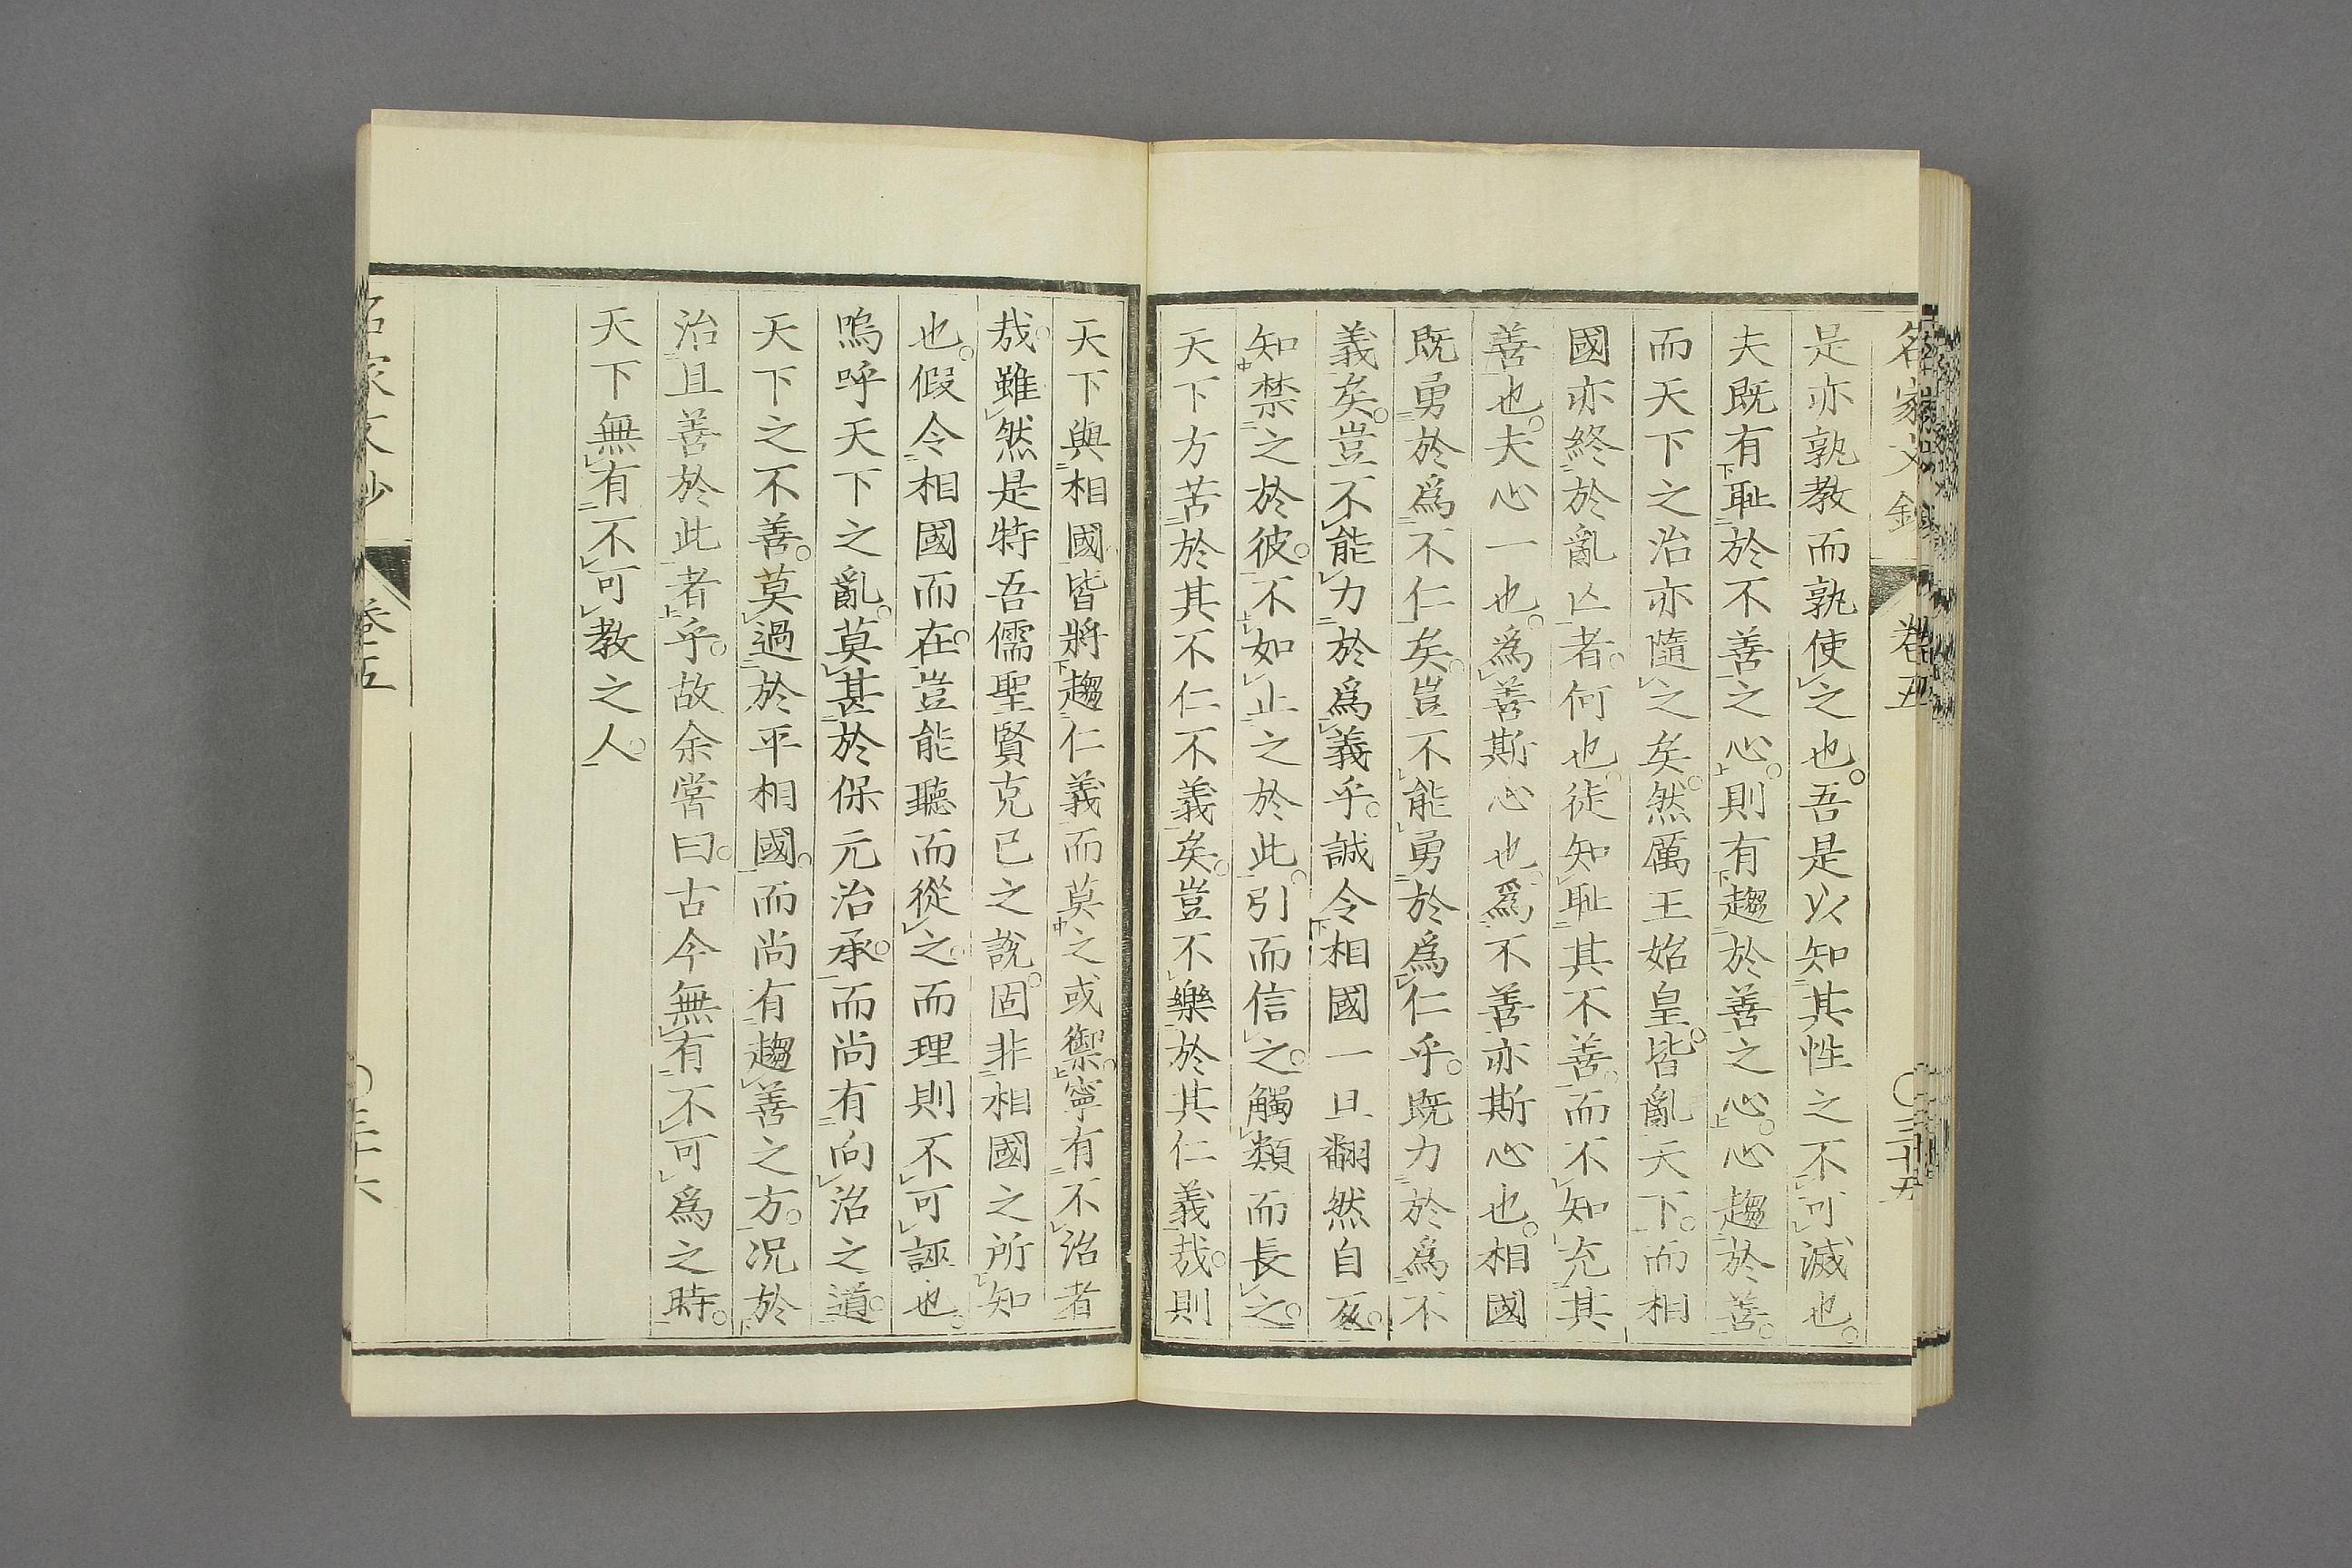 名家文鈔 卷五 〇三十五
是亦孰教而孰使之也。吾是以知其性之不可滅也。
夫既有恥於不善之心。則有趨於善之心。心趨於善。
而天下之治亦隨之矣。然厲王始皇。皆亂天下。而相
國亦終於亂亾者。何也。徒知恥其不善。而不知充其
善也。夫心一也。爲善斯心也。爲不善亦斯心也。相國
既勇於爲不仁矣。豈不能勇於爲仁乎。既力於爲不
義矣。豈不能力於爲義乎。誠令相國一旦翻然自反。
知禁之於彼。不如止之於此。引而信之。觸類而長之。
天下方苦於其不仁不義矣。豈不樂於其仁義哉。則
天下與相國皆將趨仁義而莫之或禦。寧有不治者
哉。雖然是特吾儒聖賢克己之說。固非相國之所知
也。假令相國而在。豈能聽而從之。而理則不可誣也。
嗚呼天下之亂。莫甚於保元治承。而尚有向治之道。
天下之不善。莫過於平相國。而尚有趨善之方。况於
治且善於此者乎。故余嘗曰。古今無有不可爲之時。
天下無有不可教之人。
名家文鈔 卷五 〇三十六